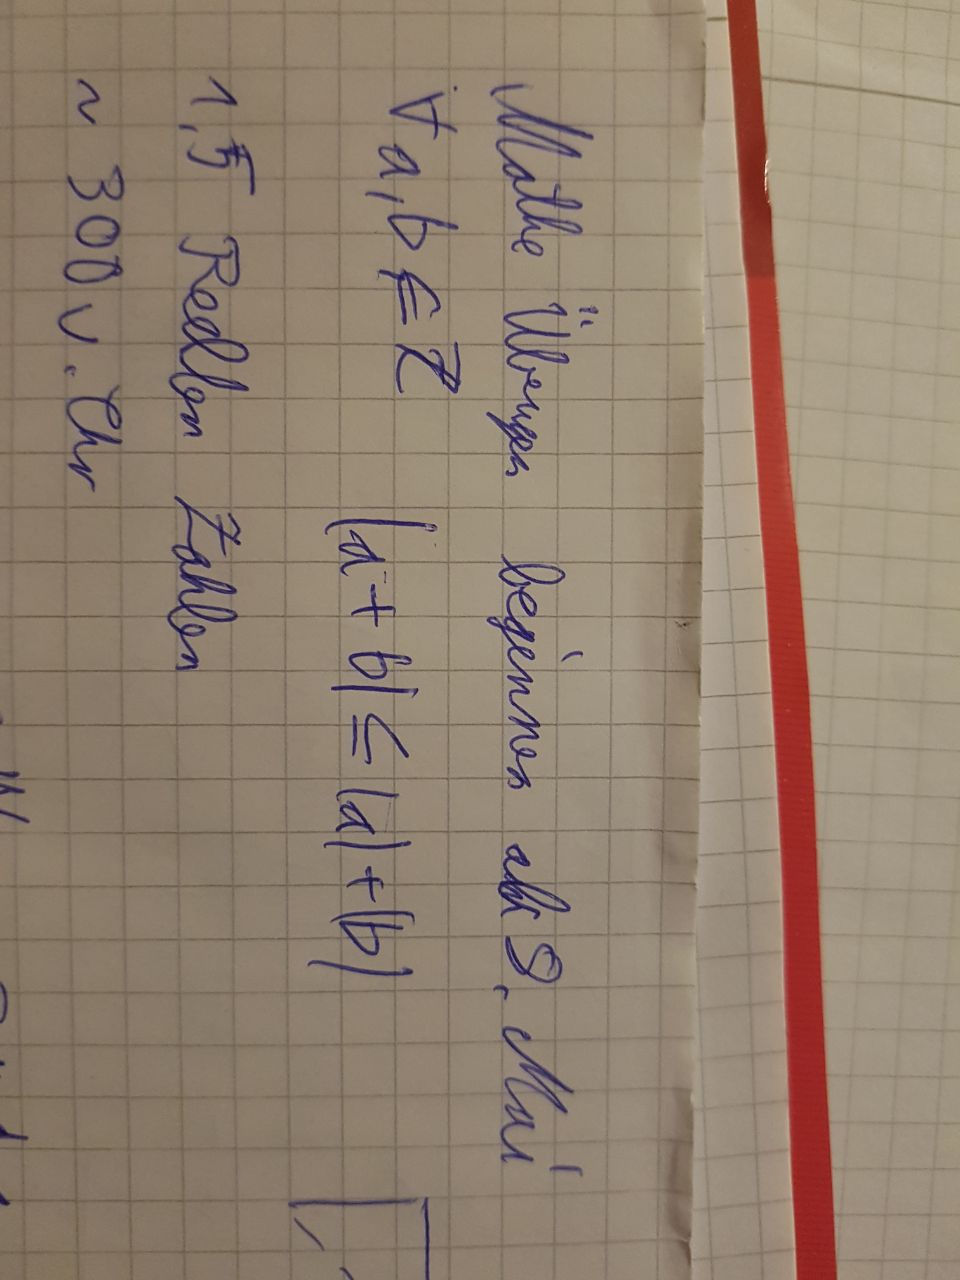 Mathe Übungen beginnen ab 8. Mai
∀ a,b ∈ Z |a + b| ≤ |a| + |b|
1,5 Reellen Zahlen
~ 300 v. Chr